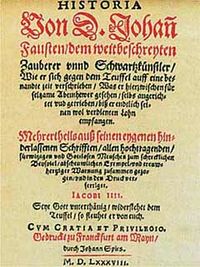 HISTORIA
Von D. Johañ
Fausten / dem weitbeschreyten
Zauberer vnnd Schwartzkünstler /
Wie er sich gegen dem Teuffel auff eine be-
nandte zeit verschrieben / Was er hierzwischen für
seltzame Abenthewr gesehen / selbs angerich-
tet vnd getrieben / biß er endtlich sei-
nen wol verdienten Lohn
empfangen.
Mehrertheils auß seinen eygenen hin-
derlassenen Schrifften / allen hochtragenden /
fürwitzigen vnd Gottlosen Menschen zum schrecklichen
Beyspiel / abscheuwlichen Exempel / vnd treuw-
hertziger Warnung zusammen gezo-
gen / vnd in den Druck ver-
fertiget.
Iacobi IIII.
Seyt Gott vnterthänig / widerstehet dem
Teuffel / so fleuhet er von euch.
CVM GRATIA ET PRIVILEGIO.
Gedruckt zu Franckfurt am Mayn /
durch Johann Spies.
M. D. LXXXVIII.